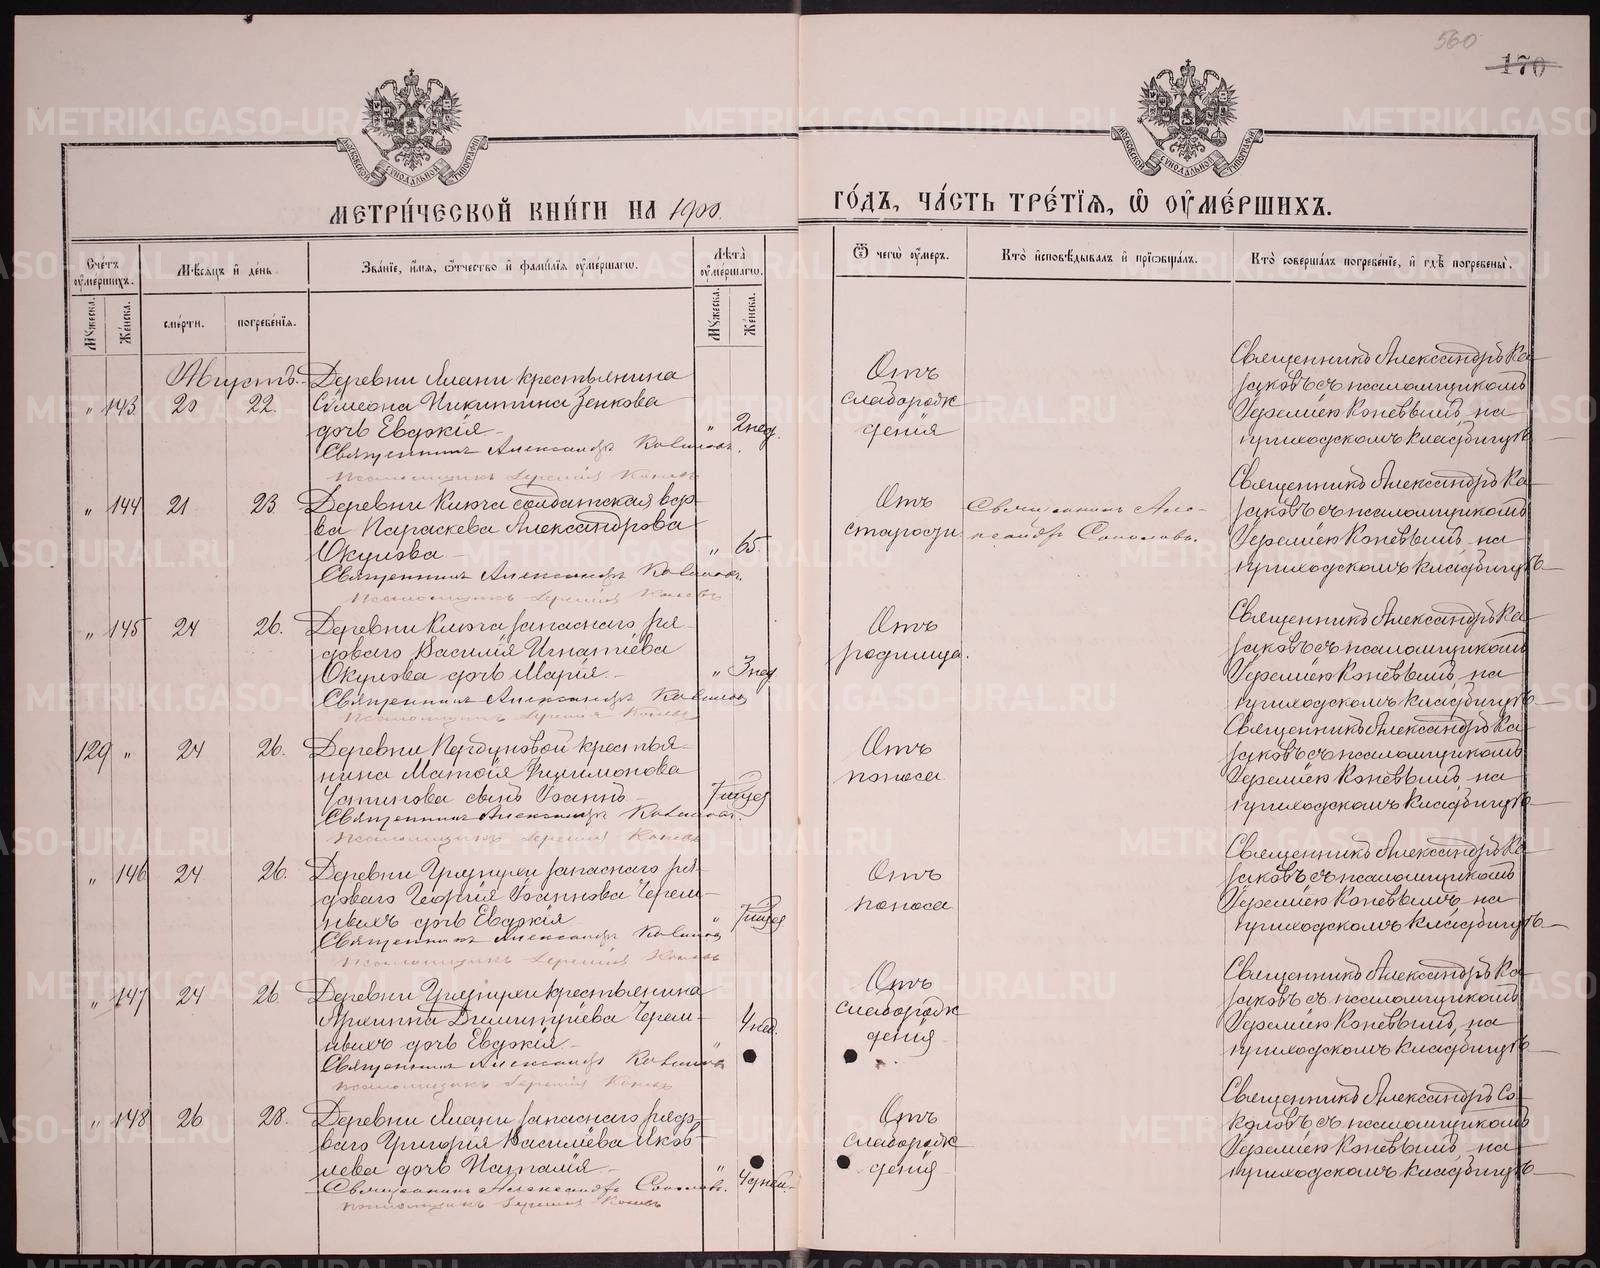 560
170
МЕТРИ́ЧЕСКОЙ КНИ́ГИ НА 1900 ГО́ДЪ, ЧА́СТЬ ТРЕ́ТІѦ, Ѽ ОУМЕ́РШИХЪ.
Сче́тъ оумершихъ.
Мѣсѧцъ и҆ де́нь
Зва́нїе, и҆мѧ, ѻ҆́тчество и҆ фамилїѧ оумершагѡ.
Лѣта̀ оумершагѡ.
Ѿ чегѡ̀ оумеръ.
Кто̀ и҆сповѣ́дывалъ и҆ прїѡбща́лъ.
Кто̀ соверша́лъ погребе́нїе, и҆ гдѣ̀ погребены̀.
Мꙋжеска.
Же́нска.
сме́рти.
погребе́нїѧ.
Мꙋжеска.
Же́нска.
Августъ.
" 143 20 22.
Деревни крестьянина
Симеона Никитина Зенкова
дочь Евдокія
Священникъ Александръ
псаломщикъ Іеремія Коневъ
" 2 нед.
Отъ
слаборож
денія
Священникъ Александръ Ка
заковъ съ псаломщикомъ
Іереміею Коневымъ, на
приходскомъ кладбищѣ
" 144 21 23
Деревни Ключа солдатская вдо
ва Параскева Александрова
Окулова
Священникъ Александръ
псаломщикъ Іеремія Коневъ
" 65.
Отъ
старости
Священникъ Але-
ксандръ Соколовъ.
Священникъ Александръ Ка
заковъ съ псаломщикомъ
Іереміею Коневымъ, на
приходскомъ кладбищѣ
" 145 24 26.
Деревни Ключа запаснаго ря
доваго Василія Игнатіева
Окулова дочь Марія
Священникъ Александръ
псаломщикъ Іеремія Коневъ
" 3 нед
Отъ
родимца.
Священникъ Александръ Ка
заковъ съ псаломщикомъ
Іереміею Коневымъ, на
приходскомъ кладбищѣ
129 " 24 26.
Деревни крестья
нина Матѳія Филимонова
сынъ Іоаннъ
Священникъ Александръ
псаломщикъ Іеремія Коневъ
Отъ
поноса
Священникъ Александръ Ка
заковъ съ псаломщикомъ
Іереміею Коневымъ, на
приходскомъ кладбищѣ
" 146 24 26.
Деревни запаснаго ря
доваго Георгія Іоаннова Черем
ныхъ дочь Евдокія
Священникъ Александръ
псаломщикъ Іеремія Коневъ
"
Отъ
поноса
Священникъ Александръ Ка
заковъ съ псаломщикомъ
Іереміею Коневымъ на
приходскомъ кладбищѣ
" 147 24 26.
Деревни крестьянина
Архиппа Димитріева Черем
ныхъ дочь Евдокія
Священникъ Александръ
псаломщикъ Іеремія Коневъ
" 4 нед.
Отъ
слаборож
денія
Священникъ Александръ Ка
заковъ съ псаломщикомъ
Іереміею Коневымъ, на
приходскомъ кладбищѣ
" 148 26 28.
Деревни запаснаго рядо
ваго Григорія Василіева Яков
лева дочь Наталія
Священникъ Александръ Соколовъ.
псаломщикъ Іеремія Коневъ
" 4 дней.
Отъ
слаборож
денія
Священникъ Александръ Со
коловъ съ псаломщикомъ
Іереміею Коневымъ, на
приходскомъ кладбищѣ
METRIKI.GASO-URAL.RU